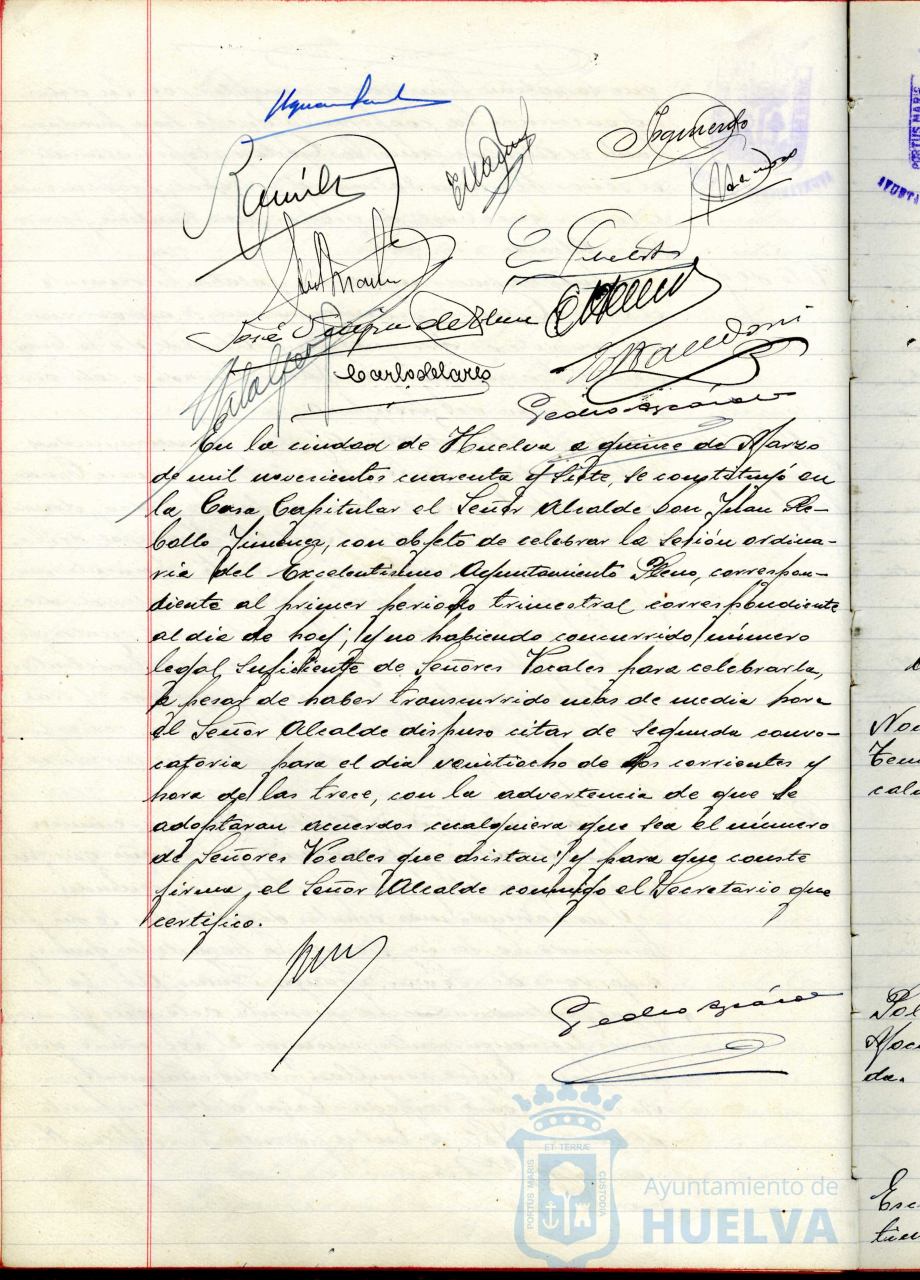 Ramírez
Izquierdo
José
Carlos
Pedro
En la ciudad de Huelva a quince de Marzo
de mil novecientos cuarenta y siete, se constituyó en
la Casa Capitular el Señor Alcalde Don Juan Re-
bollo Jiménez, con objeto de celebrar la sesión ordina-
ria del Excelentísimo Ayuntamiento Pleno, correspon-
diente al primer periodo trimestral correspondiente
al día de hoy; y no habiendo concurrido número
legal suficiente de Señores Vocales para celebrarla,
a pesar de haber transcurrido más de media hora
el Señor Alcalde dispuso citar de segunda convo-
catoria para el día veintiocho de los corrientes y
hora de las trece, con la advertencia de que se
adoptaran acuerdos cualquiera que sea el número
de Señores Vocales que asistan; y para que conste
firma, el Señor Alcalde conmigo el Secretario que
certifico.
Pedro
PORTUS MARIS
ET TERRÆ
CUSTODIA
Ayuntamiento de
HUELVA
PORTUS MARIS